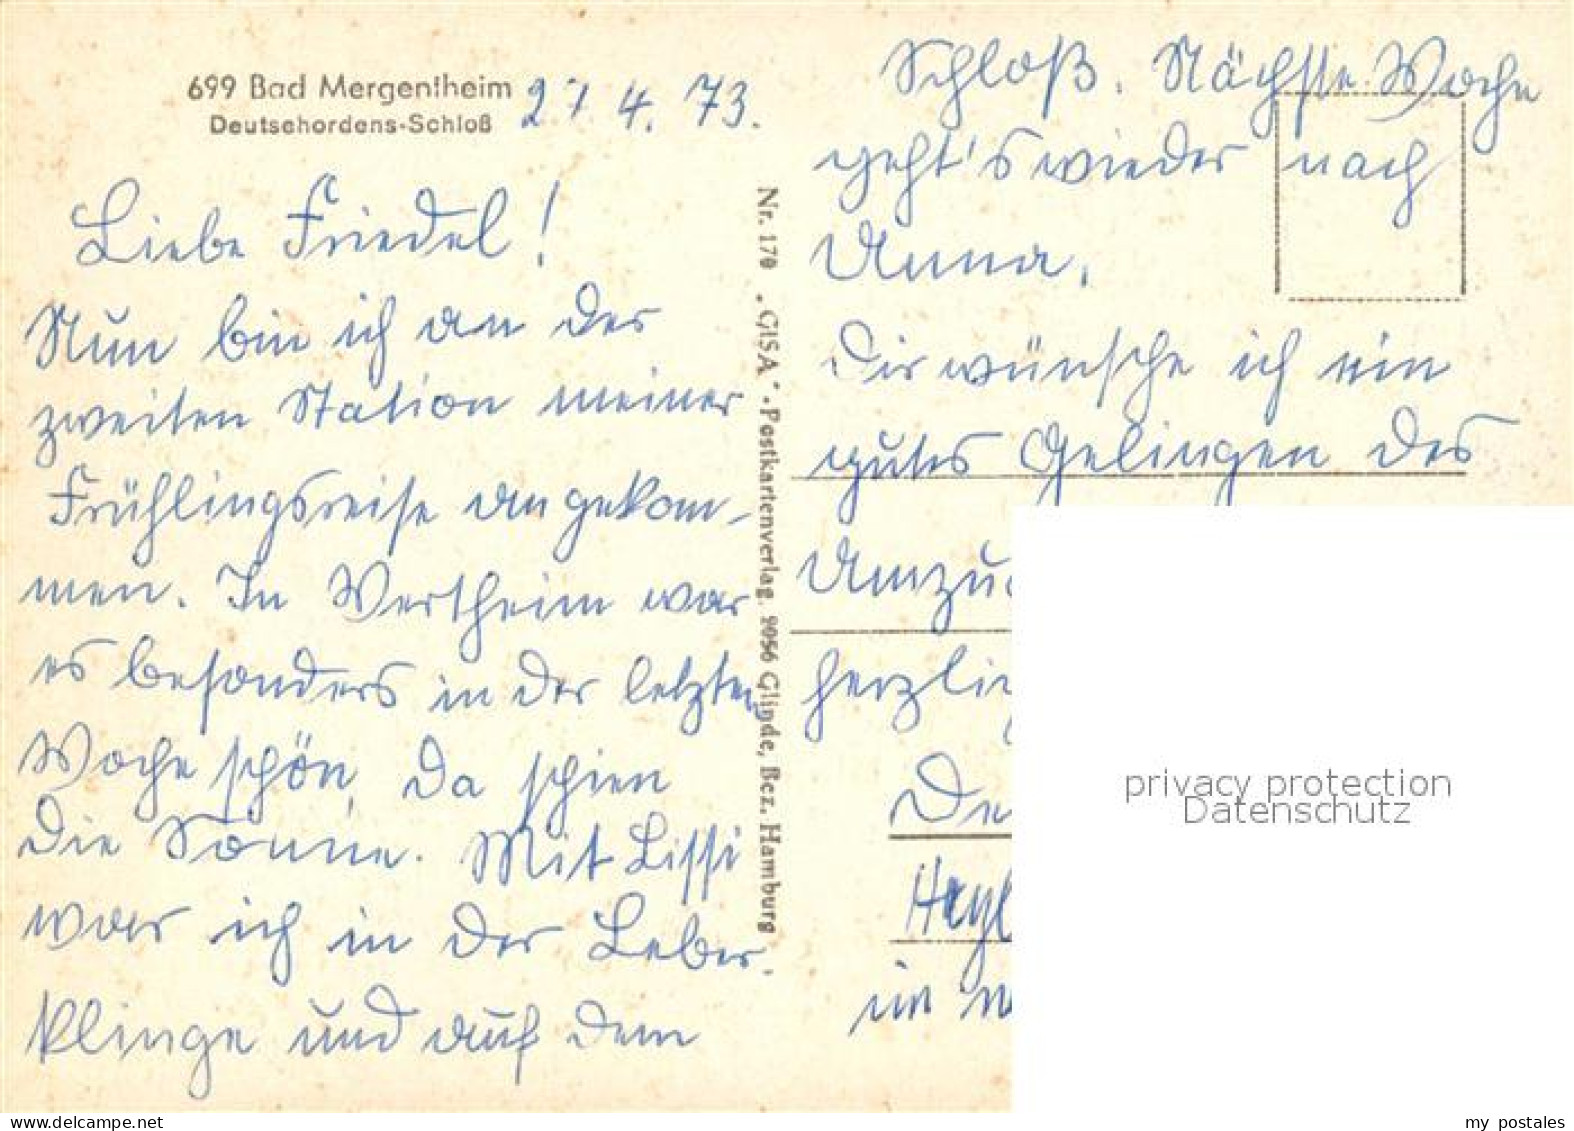 699 Bad Mergentheim
Deutschordens-Schloß
27. 4. 73.
Liebe Friedel!
Nun bin ich an der
zweiten Station meiner
Frühlingsreise angekom-
men. In Wertheim war
es besonders in der letzten
Woche schön, da schien
die Sonne. Mit Lissi
war ich in der Leber-
klinge und auf dem
Nr. 170 „GISA"-Postkartenverlag, 2056 Glinde, Bez. Hamburg
Schloß. Nächste Woche
geht's wieder nach
Unna.
Dir wünsche ich ein
gutes Gelingen des
Umzu
herzli
De
im
privacy protection
Datenschutz
my postales